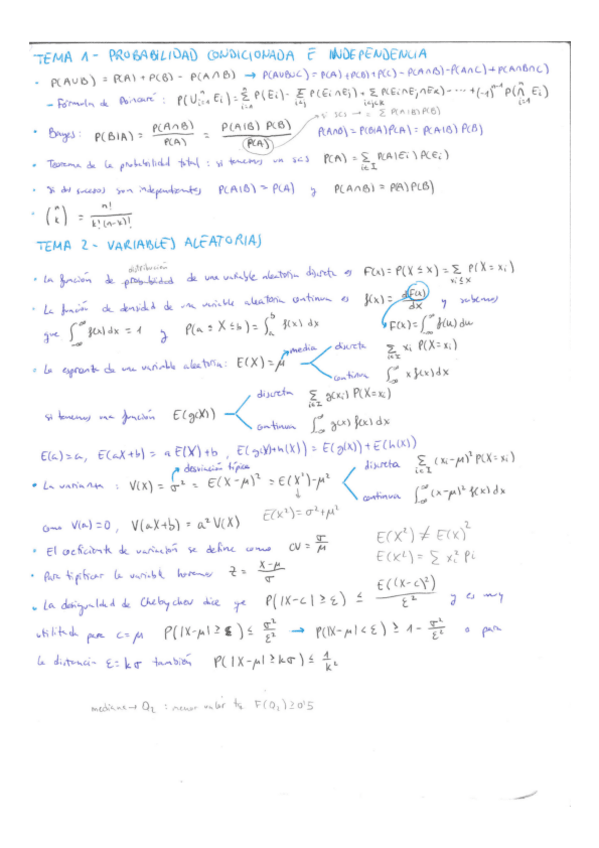 TEMA 1 - PROBABILIDAD CONDICIONADA E INDEPENDENCIA
· P(A∪B) = P(A) + P(B) - P(A∩B) → P(A∪B∪C) = P(A)+P(B)+P(C) - P(A∩B) - P(A∩C) - P(B∩C) + P(A∩B∩C)
- Fórmula de Poincaré : P(∪ⁿᵢ₌₁ Eᵢ) = Σ P(Eᵢ) - Σ P(Eᵢ∩Eⱼ) + Σ P(Eᵢ∩Eⱼ∩Eₖ) - ... + (-1)ⁿ⁻¹ P(∩ Eᵢ)
si scs → = Σ P(A|B)P(B)
· Bayes: P(B|A) = P(A∩B)/P(A) = P(A|B) P(B)/P(A) P(A∩B) = P(B|A)P(A) = P(A|B) P(B)
· Teorema de la probabilidad total : si tenemos un scs P(A) = Σ P(A|Eᵢ) P(Eᵢ)
· Si dos sucesos son independientes P(A|B) = P(A) y P(A∩B) = P(A)P(B)
· (n k) = n!/k!(n-k)!
TEMA 2 - VARIABLES ALEATORIAS
distribución
· La función de probabilidad de una variable aleatoria discreta es F(x) = P(X ≤ x) = Σ P(X = xᵢ)
· La función de densidad de una variable aleatoria continua es f(x) = dF(x)/dx y sabemos
que ∫ f(x) dx = 1 y P(a ≤ X ≤ b) = ∫ₐᵇ f(x) dx F(x) = ∫ f(u) du
· La esperanza de una variable aleatoria : E(X) = μ media discreta Σ xᵢ P(X = xᵢ)
continua ∫ x f(x) dx
si tenemos una función E(g(X)) discreta Σ g(xᵢ) P(X = xᵢ)
continua ∫ g(x) f(x) dx
E(a) = a, E(aX+b) = a E(X) + b , E(g(X)+h(X)) = E(g(X)) + E(h(X))
desviación típica
· La varianza : V(X) = σ² = E(X-μ)² = E(X²) - μ² discreta Σ (xᵢ-μ)² P(X = xᵢ)
continua ∫ (x-μ)² f(x) dx
E(X²) = σ² + μ²
como V(a) = 0 , V(aX+b) = a² V(X)
· El coeficiente de variación se define como CV = σ/μ
E(X²) ≠ E(X)²
E(X²) = Σ xᵢ² pᵢ
· Para tipificar la variable hacemos Z = X-μ/σ
· La desigualdad de Chebychev dice que P(|X-c| ≥ ε) ≤ E((X-c)²)/ε² y es muy
utilizada para c = μ P(|X-μ| ≥ ε) ≤ σ²/ε² → P(|X-μ| < ε) ≥ 1 - σ²/ε² o para
la distancia ε = kσ también P(|X-μ| ≥ kσ) ≤ 1/k²
mediana → Q₂ : menor valor tq F(Q₂) ≥ 0'5